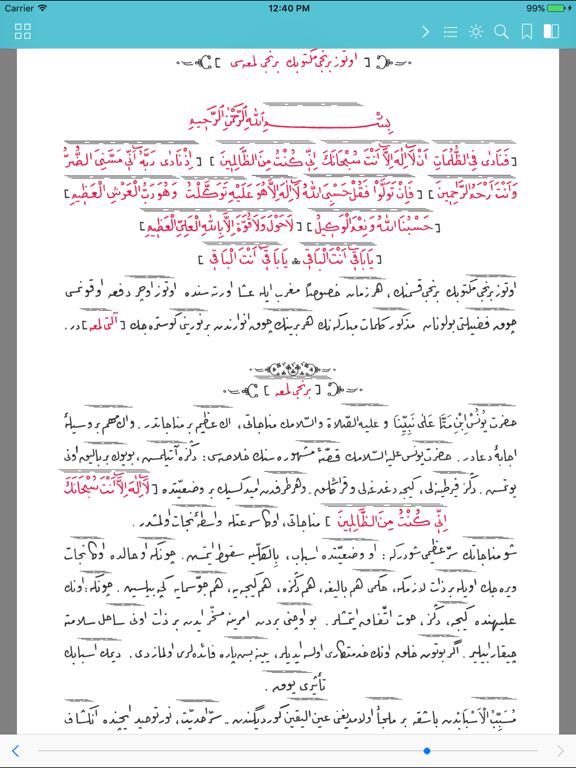 Carrier 12:40 PM 99%
[ اوتوز برنجى مكتوبك برنجى لمعه سى ]
بِسْــــمِ اللهِ الرَّحْمٰنِ الرَّحِيمِ
[ فَنَادٰى فِى الظُّلُمَاتِ اَنْ لَٓا اِلٰهَ اِلَّٓا اَنْتَ سُبْحَانَكَ اِنِّى كُنْتُ مِنَ الظَّالِمِينَ ] [ اِذْ نَادٰى رَبَّهُٓ اَنِّى مَسَّنِىَ الضُّرُّ
وَاَنْتَ اَرْحَمُ الرَّاحِمِينَ ] [ فَاِنْ تَوَلَّوْا فَقُلْ حَسْبِىَ اللهُ لَٓا اِلٰهَ اِلَّا هُوَ عَلَيْهِ تَوَكَّلْتُ وَهُوَ رَبُّ الْعَرْشِ الْعَظِيمِ ]
[ حَسْبُنَا اللهُ وَنِعْمَ الْوَكِيلُ ] [ لَا حَوْلَ وَلَا قُوَّةَ اِلَّا بِاللهِ الْعَلِىِّ الْعَظِيمِ ]
[ يَا بَاقِى اَنْتَ الْبَاقِى ٭ يَا بَاقِى اَنْتَ الْبَاقِى ]
اوتوز برنجى مكتوبك برنجى قسمنك، هر زمان خصوصًا مغرب ايله عشا اورته سنده اوتوز اوچر دفعه اوقونمسى
چوق فضيلتلى بولونان مذكور كلمات مباركه نك هر برينك چوق انوارندن بر نورينى كوستره جك [ آلتى لمعه ] در.
[ برنجى لمعه ]
حضرت يُونُسَ ابْنِ مَتّٰى عَلٰى نَبِيِّنَا وَ عليه الصّلاة والسّلامك مناجاتى، اك عظيم بر مناجاتدر. واك مهم بر وسيلۀ
اجابۀ دعادر. حضرت يونس عليه السّلامك قصّۀ مشهوره سنك خلاصه سى: دكزه آتيلمس، بويوك بر باليق اونى
يوتمس. دكز فيرطنه لى، كيجه دغدغه لى وقراكلق. وهر طرفدن اميد كسيك بر وضعيتده [ لَٓا اِلٰهَ اِلَّٓا اَنْتَ سُبْحَانَكَ
اِنِّى كُنْتُ مِنَ الظَّالِمِينَ ] مناجاتى، اوكا سرعتله واسطۀ نجات اولمشدر.
شو مناجاتك سرّ عظيمى شودركه: او وضعيتده اسباب، بالكلّيه سقوط ايتمس. چونكه او حالده اوكا نجات
ويره جك اويله بر ذات لازمكه، حكمى هم باليغه، هم دكزه، هم كيجه يه، هم جوّ سمايه كچه بيلسين. چونكه: اونك
عليهنده كيجه، دكز، حوت اتّفاق ايتمشلر. بو اوچنى بردن امرينه مسخّر ايدن بر ذات اونى ساحل سلامته
چيقارابيلير. اكر بوتون خلق اونك خدمتكارى اولسه ايديلر، يينه بس پاره فائده لرى اولمازدى. ديمك اسبابك
تأثيرى يوق.
مُسَبِّبُ الْاَسْبَابْدن باشقه بر ملجأ اولامديغنى عين اليقين كورديكندن سرّ احديت، نور توحيد ايچنده انكشاف